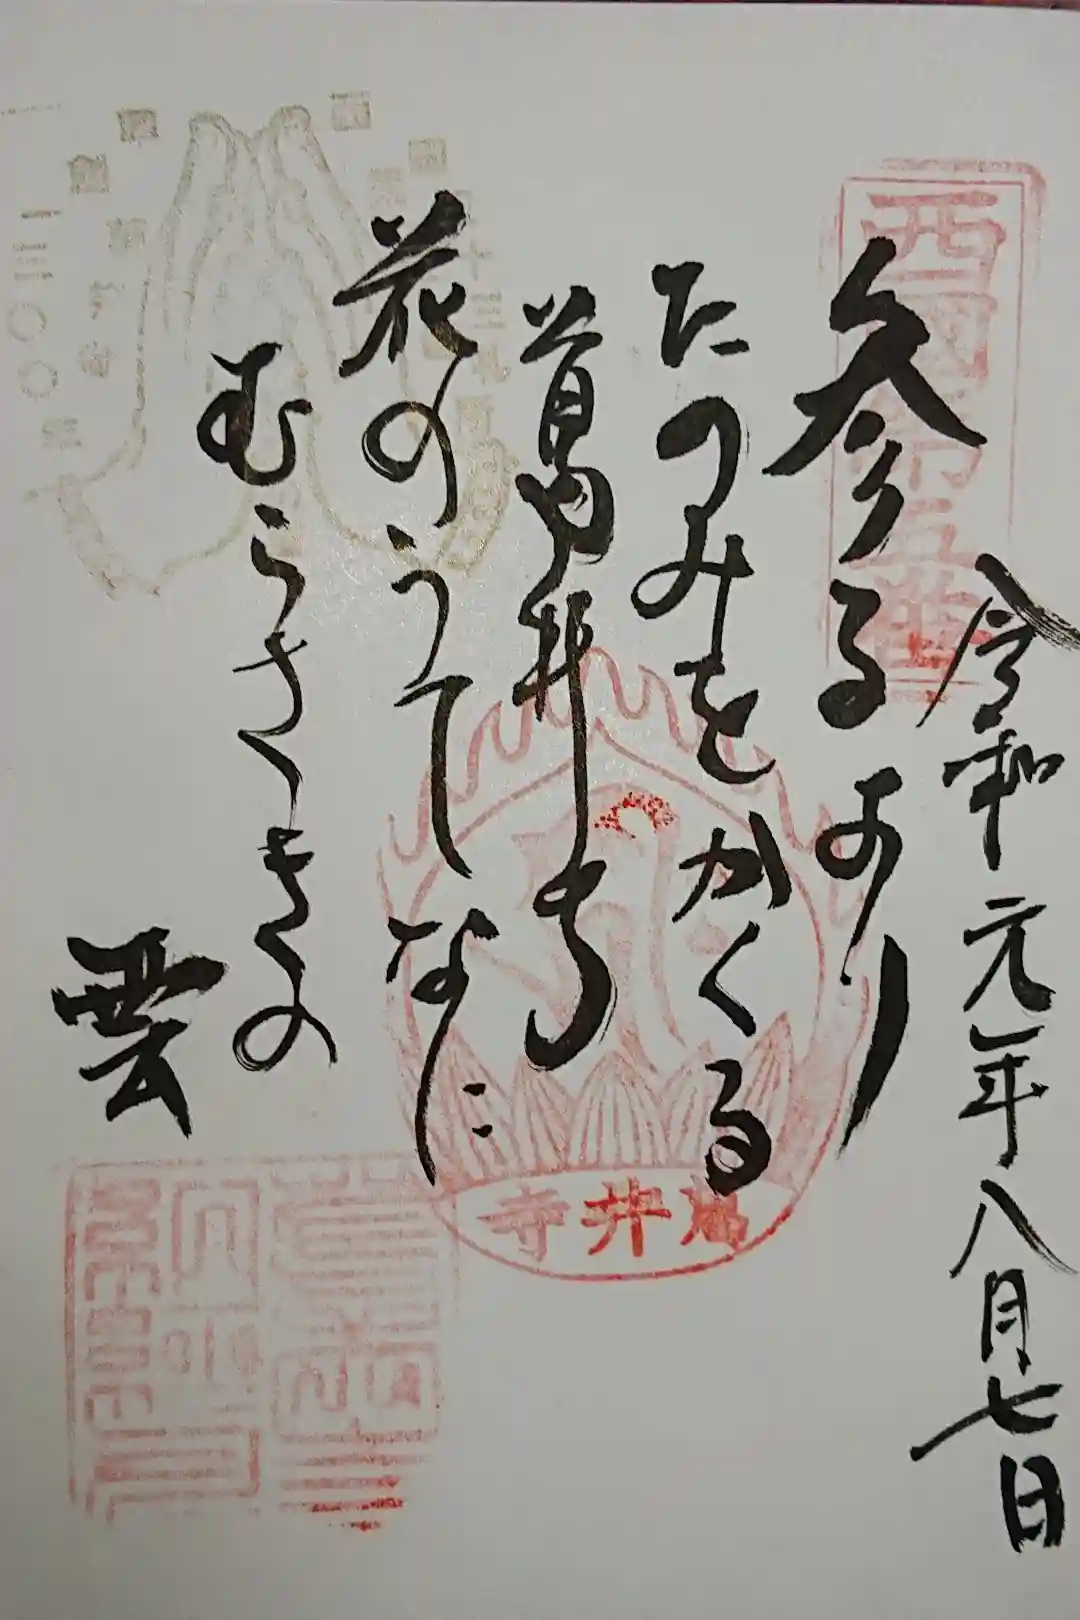 令和元年八月七日
西國第五番
参るより
たのみをかくる
葛井寺
花のうてなに
むらさきの
雲
葛井寺